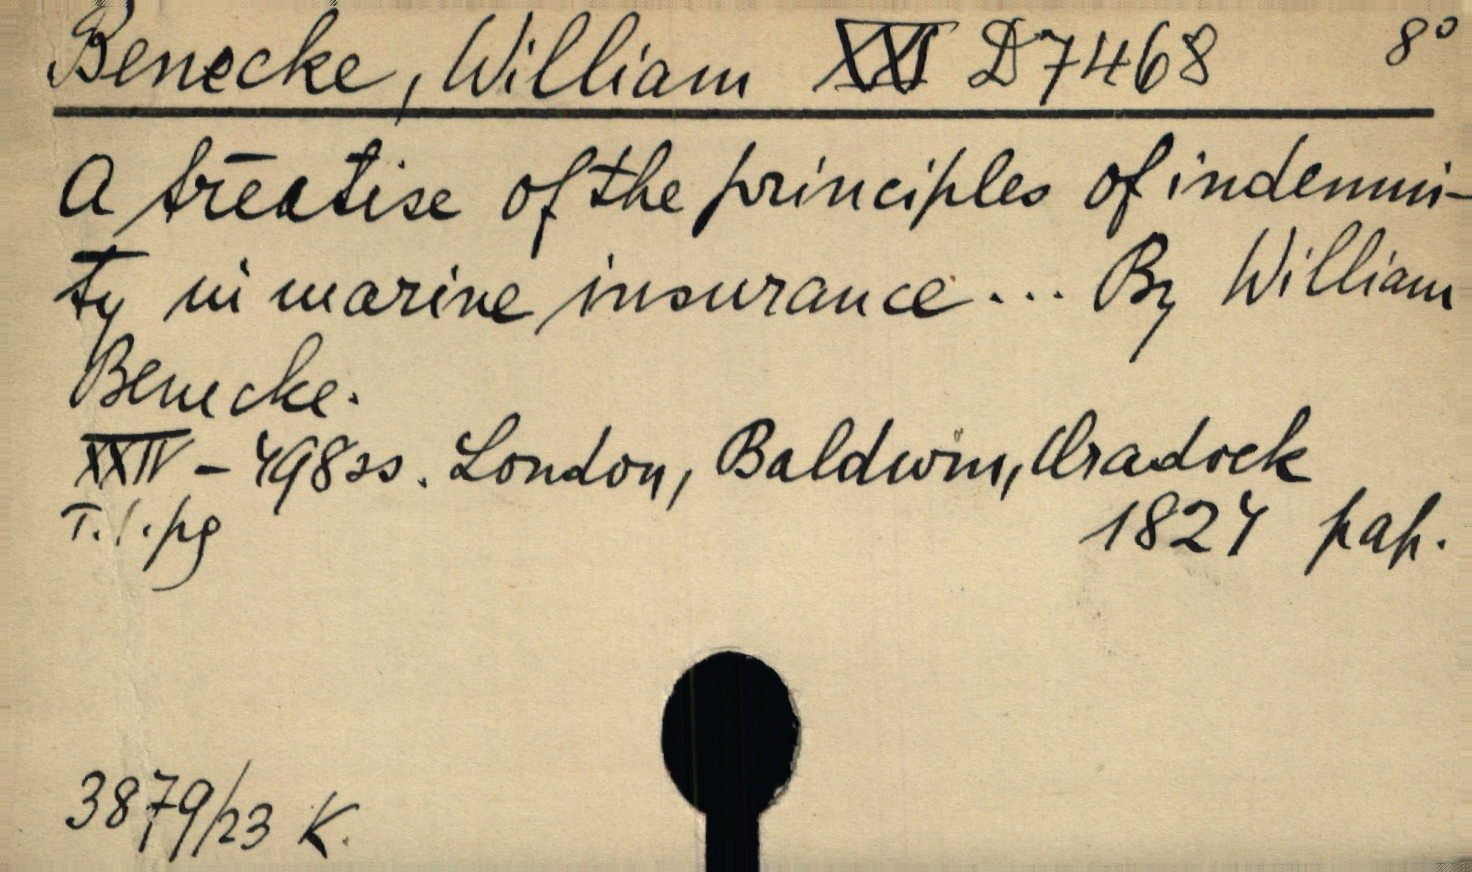 Benecke, William XXI D7468 8°
A treatise of the principles of indemni-
ty in marine insurance... By William
Benecke.
XXIV - 498 ss. London, Baldwin, Cradock
T.l.pg 1824 pap.
3879/23 K.